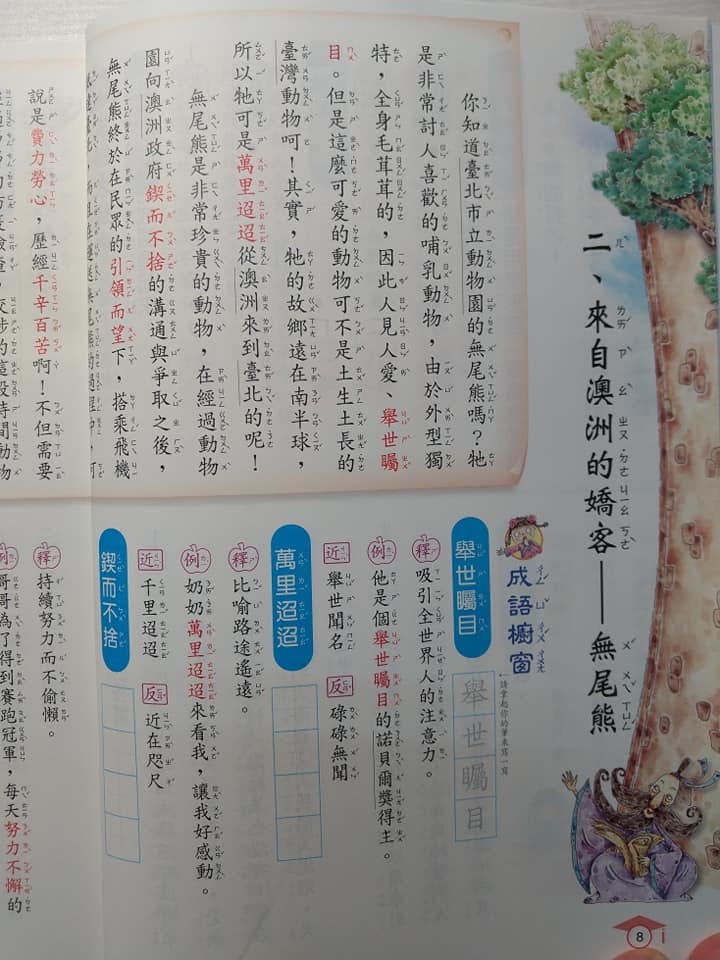 二、來自澳洲的嬌客——無尾熊
你知道臺北市立動物園的無尾熊嗎?牠
是非常討人喜歡的哺乳動物,由於外型獨
特,全身毛茸茸的,因此人見人愛、舉世矚
目。但是這麼可愛的動物可不是土生土長的
臺灣動物呵!其實,牠的故鄉遠在南半球,
所以牠可是萬里迢迢從澳洲來到臺北的呢!
無尾熊是非常珍貴的動物,在經過動物
園向澳洲政府鍥而不捨的溝通與爭取之後,
無尾熊終於在民眾的引領而望下,搭乘飛機
說是費力勞心,歷經千辛百苦啊!不但需要
交涉的這段時間動物
成語櫥窗
請拿起你的筆來寫一寫
舉世矚目
舉世矚目
釋 吸引全世界人的注意力。
例 他是個舉世矚目的諾貝爾獎得主。
近 舉世聞名 反 碌碌無聞
萬里迢迢
釋 比喻路途遙遠。
例 奶奶萬里迢迢來看我,讓我好感動。
近 千里迢迢 反 近在咫尺
鍥而不捨
釋 持續努力而不偷懶。
例 哥哥為了得到賽跑冠軍,每天努力不懈的
8